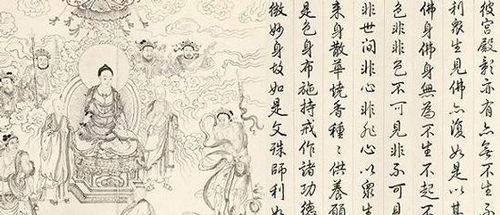 彼宮殿影亦有亦無不生不
利衆生見佛亦復如是以其
佛身佛身無為不生不起不
色非非色不可見非不可見
非世間非心非非心以衆生
来身散華燒香種〻供養願
是色身布施持戒作諸功德
微妙身故如是文殊師利如